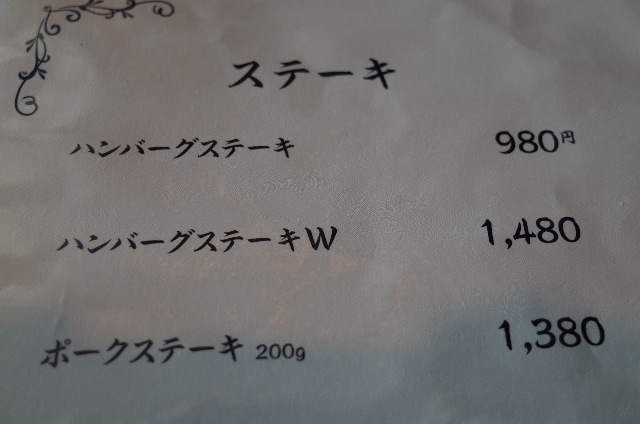 ステーキ
ハンバーグステーキ 980円
ハンバーグステーキW 1,480
ポークステーキ 200g 1,380